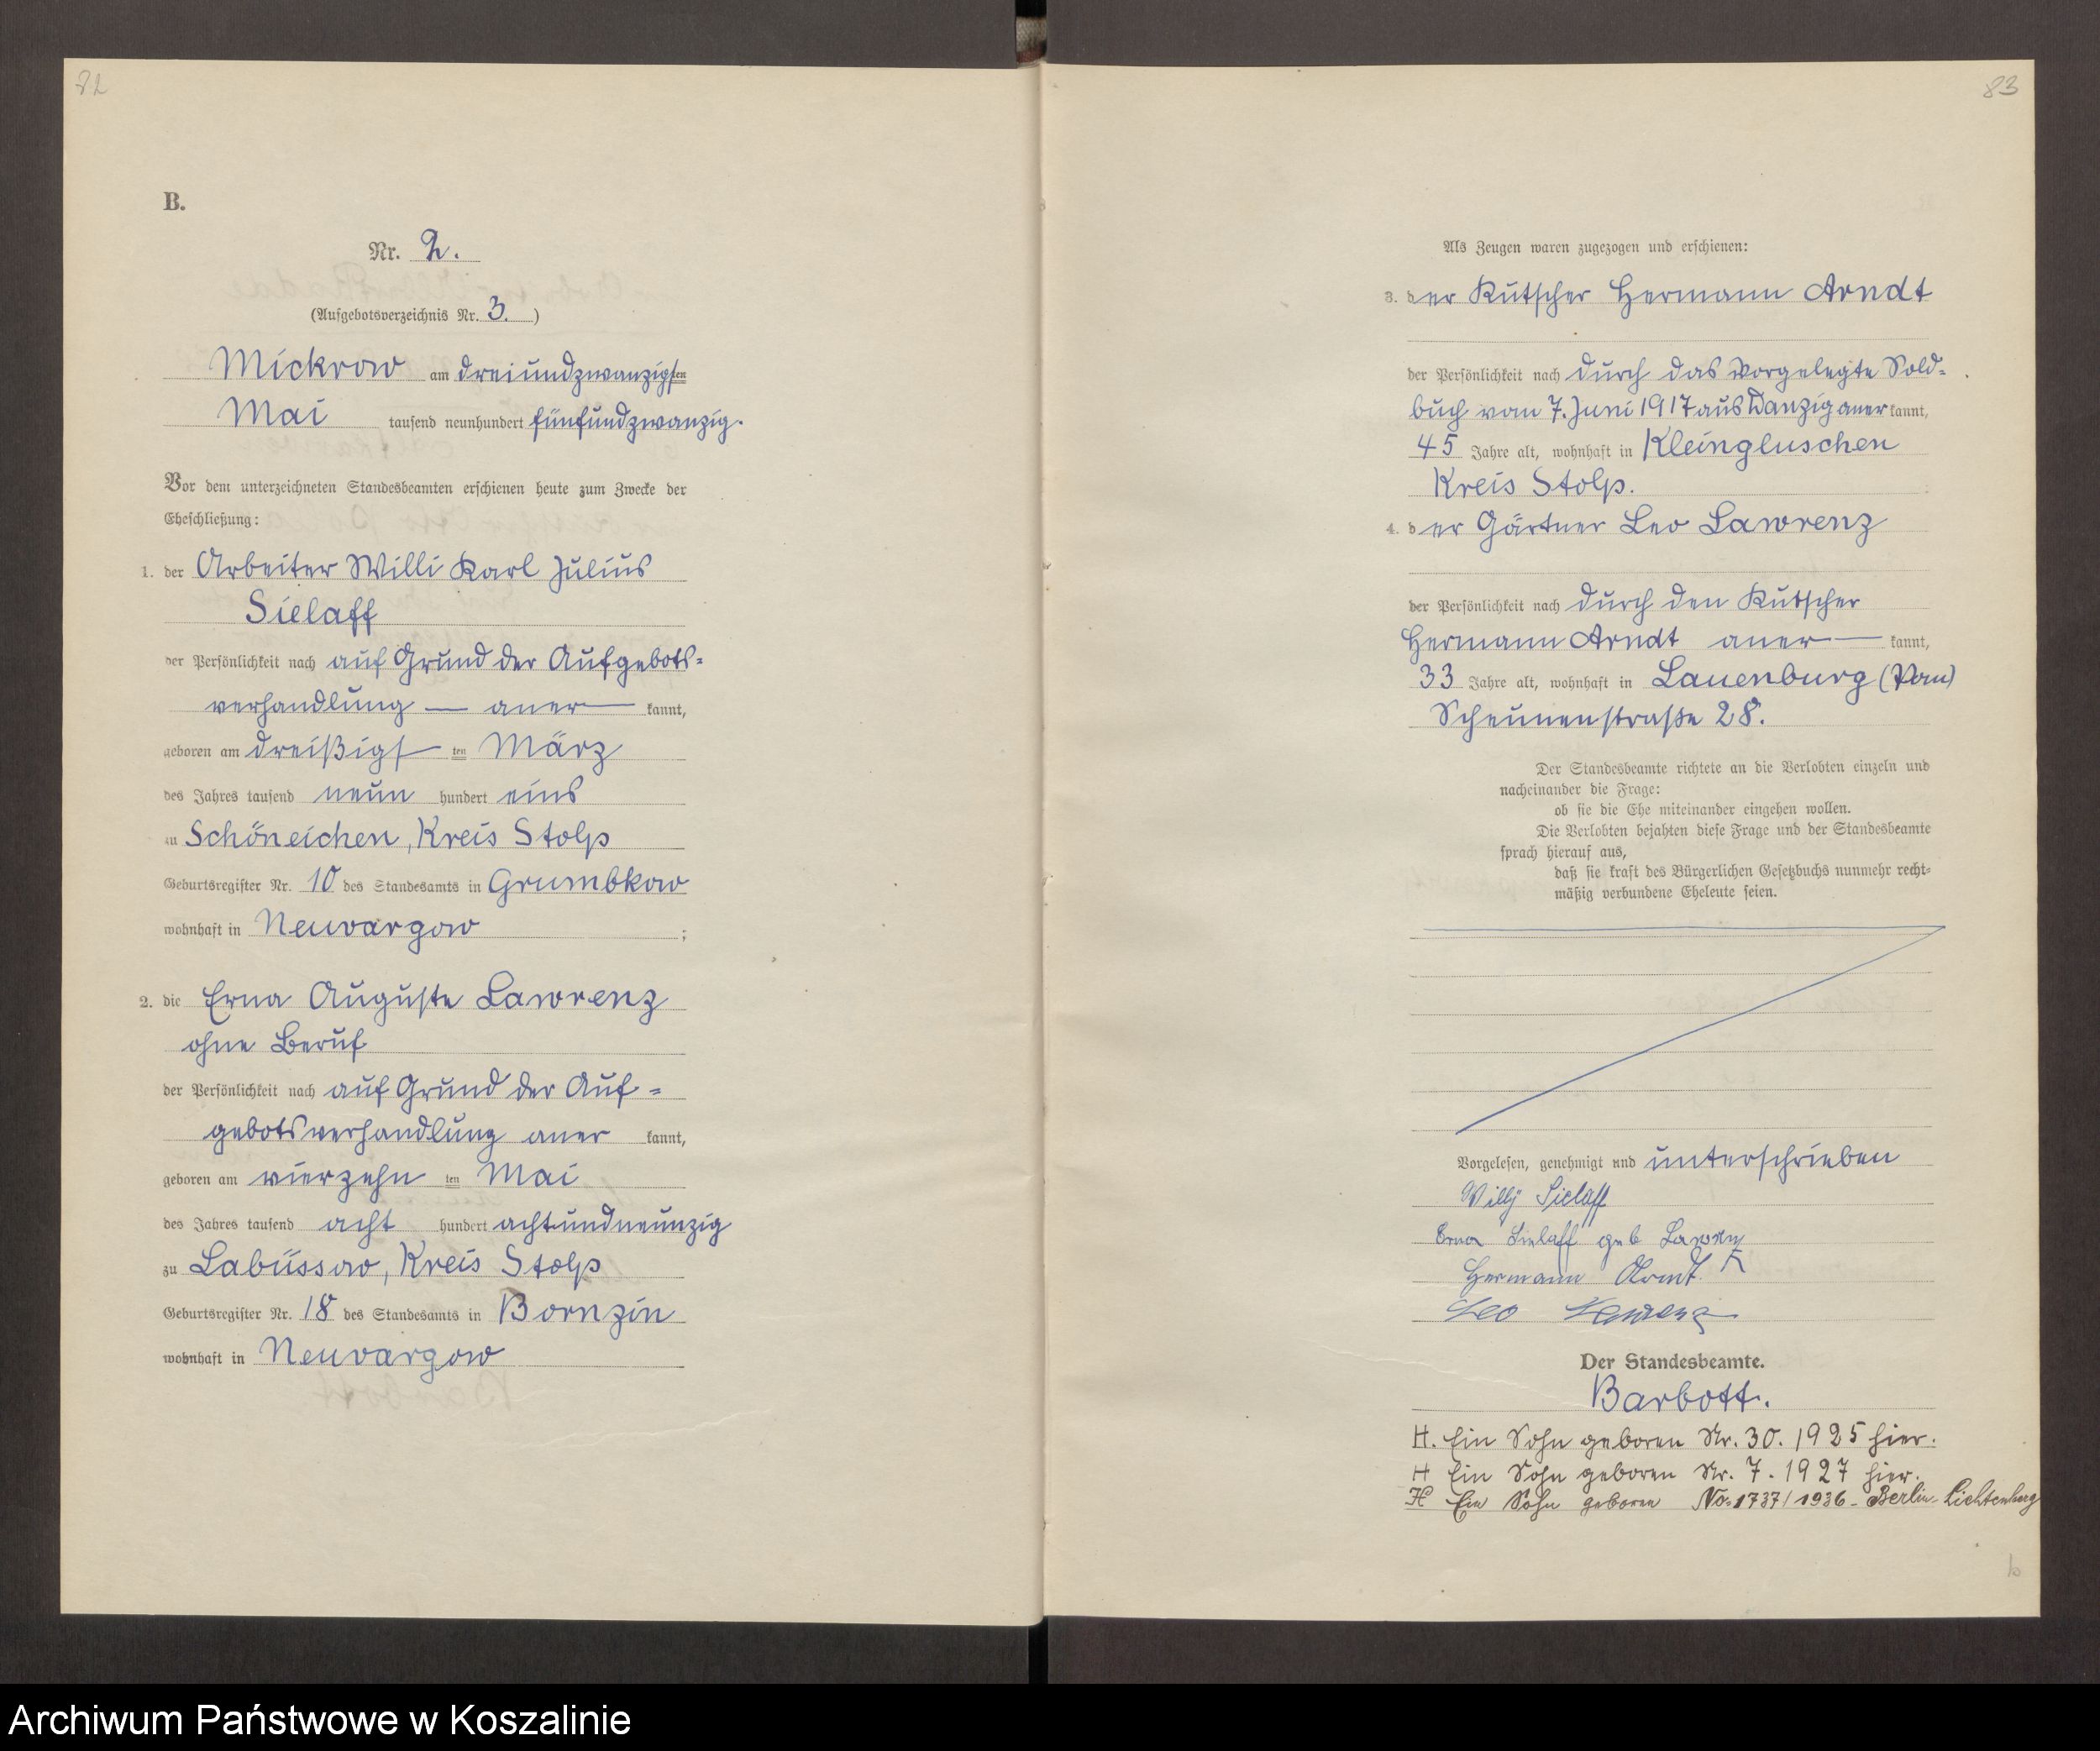 82
B.
Nr. 2.
(Aufgebotsverzeichnis Nr. 3.)
Mickrow am dreiundzwanzigsten
Mai tausend neunhundert fünfundzwanzig.
Vor dem unterzeichneten Standesbeamten erschienen heute zum Zwecke der
Eheschließung:
1. der Arbeiter Willi Karl Julius
Sielaff
der Persönlichkeit nach auf Grund der Aufgebots=
verhandlung — aner — kannt,
geboren am dreißigst — ten März
des Jahres tausend neun hundert eins
zu Schöneichen, Kreis Stolp
Geburtsregister Nr. 10 des Standesamts in Grumbkow
wohnhaft in Neuvargow ;
2. die Erna Auguste Lawrenz
ohne Beruf
der Persönlichkeit nach auf Grund der Auf=
gebotsverhandlung aner kannt,
geboren am vierzehn ten Mai
des Jahres tausend acht hundert achtundneunzig
zu Labüssow, Kreis Stolp
Geburtsregister Nr. 18 des Standesamts in Bornzin
wohnhaft in Neuvargow
83
Als Zeugen waren zugezogen und erschienen:
3. der Kutscher Hermann Arndt
der Persönlichkeit nach durch das vorgelegte Sold=
buch vom 7. Juni 1917 aus Danzig aner kannt,
45 Jahre alt, wohnhaft in Kleingluschen
Kreis Stolp.
4. der Gärtner Leo Lawrenz
der Persönlichkeit nach durch den Kutscher
Hermann Arndt aner — kannt,
33 Jahre alt, wohnhaft in Lauenburg (Pom)
Scheunenstraße 28.
Der Standesbeamte richtete an die Verlobten einzeln und
nacheinander die Frage:
ob sie die Ehe miteinander eingehen wollen.
Die Verlobten bejahten diese Frage und der Standesbeamte
sprach hierauf aus,
daß sie kraft des Bürgerlichen Gesetzbuchs nunmehr recht=
mäßig verbundene Eheleute seien.
Vorgelesen, genehmigt und unterschrieben
Willy Sielaff
Erna Sielaff geb Lawrenz
Hermann Arndt.
Leo Lawrenz
Der Standesbeamte.
Barbott.
H. Ein Sohn geboren Nr. 30. 1925 hier.
H Ein Sohn geboren Nr. 7. 1927 hier.
H Ein Sohn geboren No. 1737/1936 - Berlin-Lichtenberg
Archiwum Państwowe w Koszalinie